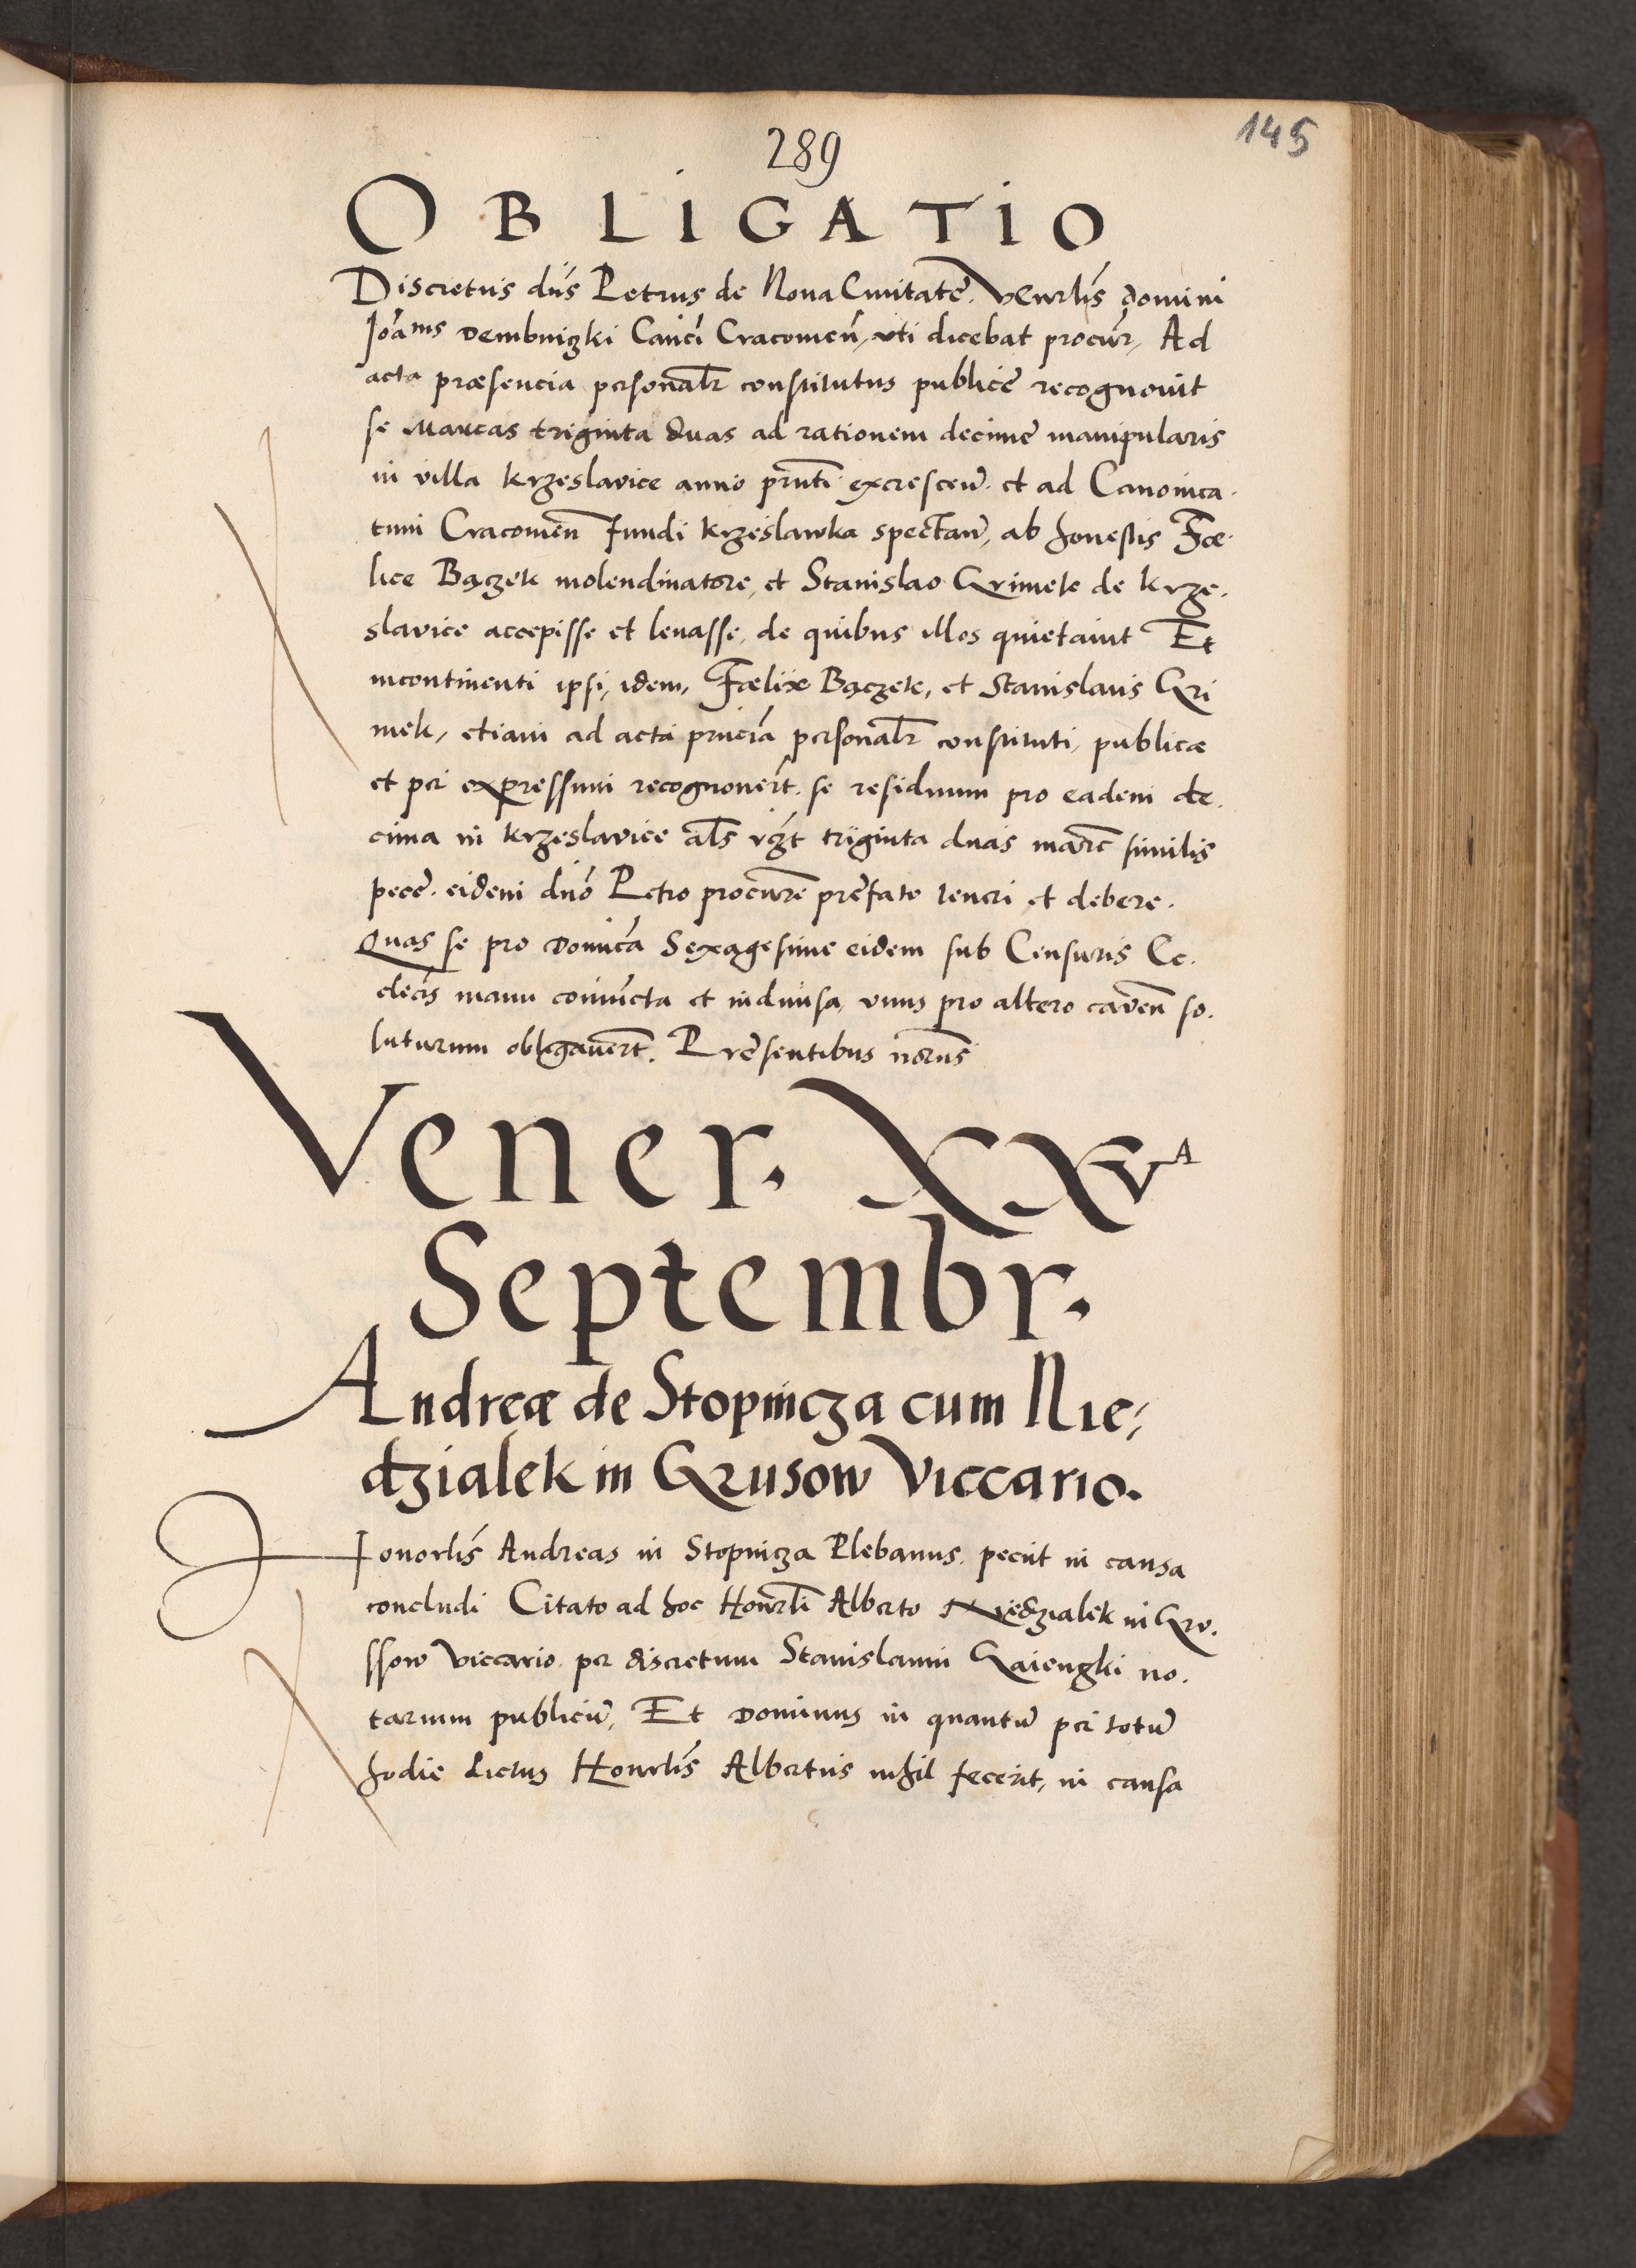 145
289
OBLIGATIO
Discretus dns̄ Petrus de Nova Civitate. Venrlis̄ domini
Joānis Dembnizki Canci Cracovien̄, uti dicebat procur, Ad
acta præsencia personalr̄ constitutus publice recognovit
se marcas triginta duas ad rationem decime manipularis
in villa Krzeslavice anno prnti excrescen̄. et ad Canonica-
tum Cracovien̄ fundi Krzeslawka spectan̄, ab honestis Fœ-
lice Bączek molendinatore, et Stanislao Grimek de Krze-
slavice accepisse et levasse, de quibus illos quietavit Et
incontinenti ipsi, idem, Fœlix Bączek, et Stanislaus Gri
mek, etiam ad acta prncia personalr̄ constituti, publicæ
et per expressum recognovert̄. se residuum pro eadem de-
cima in Krzeslavice als̄ vzt triginta duas marc̄ similis
pece. eidem dno Petro procure prefato teneri et debere.
Quas se pro Domica Sexagesime eidem sub Censuris Ec-
clecis manu coniuncta et indivisa, unus pro altero caven̄ so-
luturum obligavert̄. Presentibus
Vener. XXVᴬ
Septembr.
Andreæ de Stopnicza cum Nie-
dzialek in Grusow Viccario.
Honorlis̄ Andreas in Stopnicza Plebanus. peciit in causa
concludi Citato ad hoc Honrli Alberto Niedzialek in Gro-
ssow Viccario. per discretum Stanislaum Gaiengki no-
tarium publicū, Et Dominus in quantū per totū
hodie dictus Honrlis̄ Albertus nihil fecerit, in causa